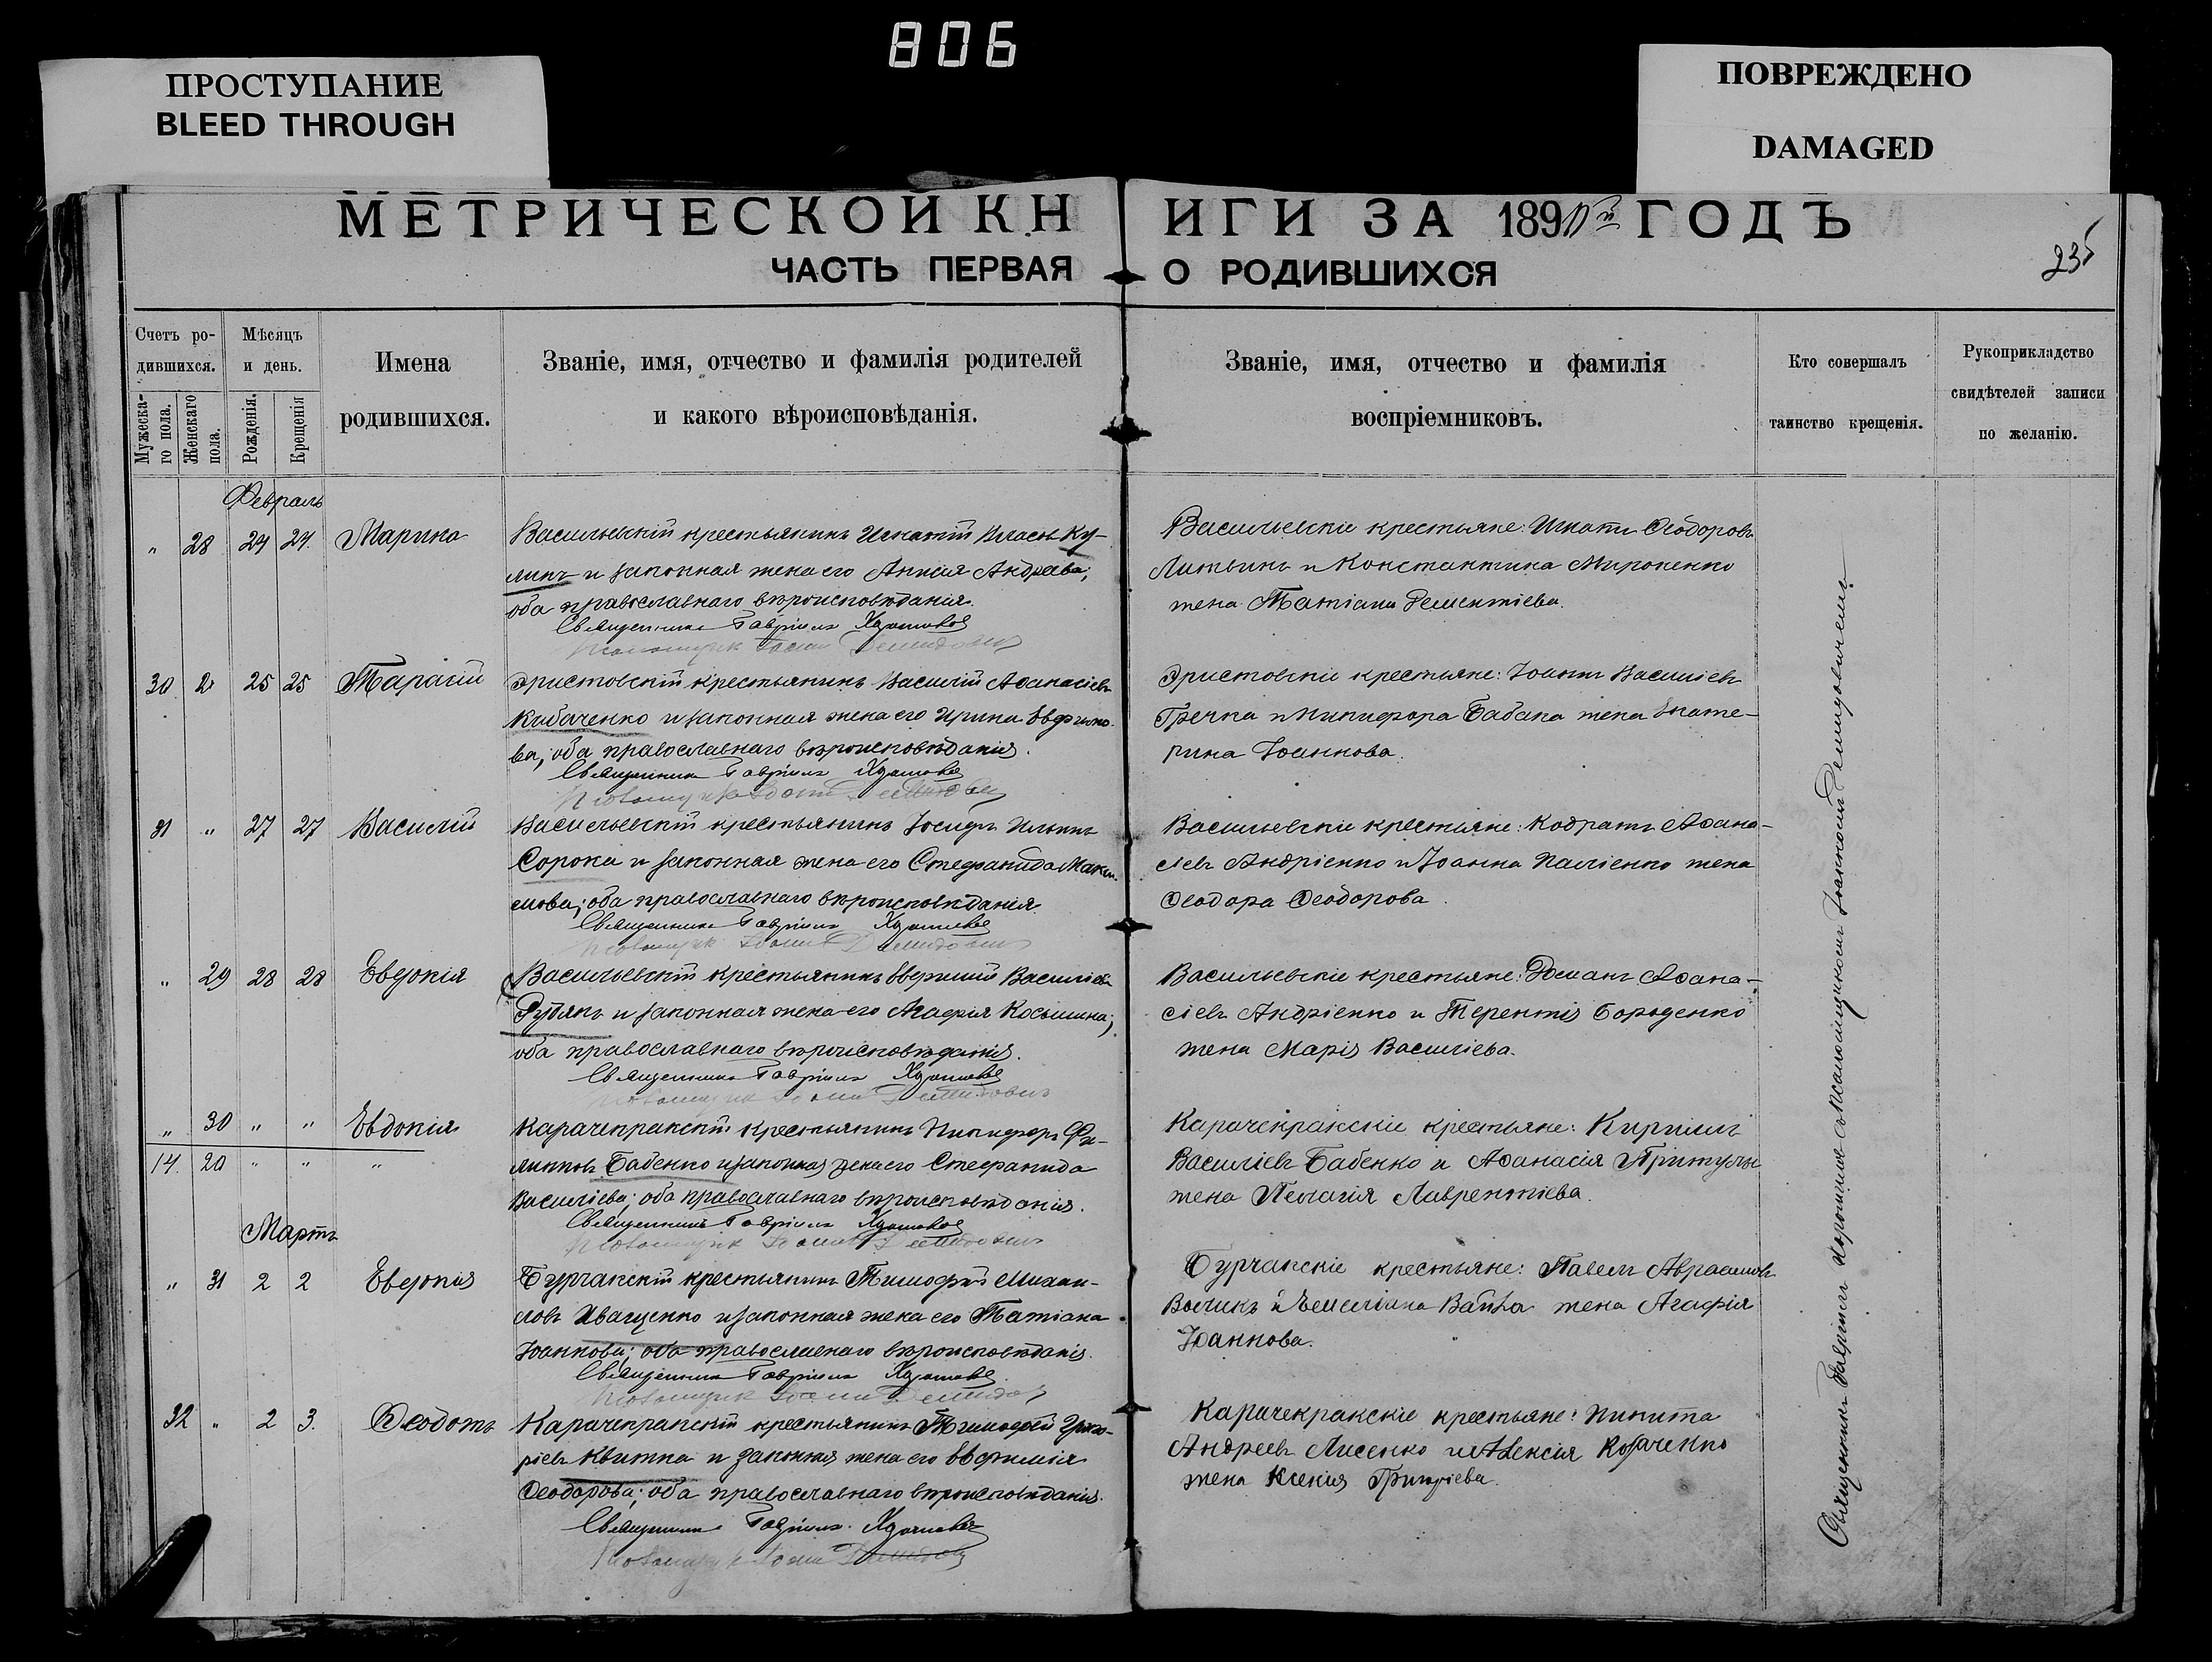 806
ПРОСТУПАНИЕ
BLEED THROUGH
ПОВРЕЖДЕНО
DAMAGED
МЕТРИЧЕСКОЙ КНИГИ ЗА 189 ГОДЪ
235
ЧАСТЬ ПЕРВАЯ О РОДИВШИХСЯ
Счетъ ро-
дившихся.
Мужеска-
го пола.
Женскаго
пола.
Мѣсяцъ
и день.
Рожденія.
Крещенія
Имена
родившихся.
Званіе, имя, отчество и фамилія родителей
и какого вѣроисповѣданія.
Званіе, имя, отчество и фамилія
воспріемниковъ.
Кто совершалъ
таинство крещенія.
Рукоприкладство
свидѣтелей записи
по желанію.
Февраль
" 28 24 24 Марина
Васильевскій крестьянинъ Игнатій Власовъ Ку-
линъ и законная жена его Анисія Андреева;
оба православнаго вѣроисповѣданія.
Священникъ Гавріилъ
Васильевскіе крестьяне: Игнатъ Ѳеодоровъ
Литвинъ и Константина Мироненко
жена Татіана Дементіева.
30 25 25 Тарасій
Эристовскій крестьянинъ Василій Аѳанасіевъ
Кибаченко и законная жена его Ирина Евфимо-
ва; оба православнаго вѣроисповѣданія.
Священникъ Гавріилъ
Эристовскіе крестьяне: Іоаннъ Василіевъ
Гречка и Никифора Бабака жена Екате-
рина Іоаннова.
31 " 27 27 Василій
Васильевскій крестьянинъ Іосифъ Ильинъ
Сорока и законная жена его Стефанида Макси-
мова; оба православнаго вѣроисповѣданія.
Священникъ Гавріилъ
Васильевскіе крестьяне: Кодратъ Аѳана-
сіевъ Андріенко и Іоанна Паліенко жена
Ѳеодора Ѳеодорова.
" 29 28 28 Евдокія
Васильевскій крестьянинъ Евфимій Василіевъ
Рубанъ и законная жена его Агафія Косьмина;
оба православнаго вѣроисповѣданія.
Священникъ Гавріилъ
Васильевскіе крестьяне: Романъ Аѳана-
сіевъ Андріенко и Терентія Бороденко
жена Марія Василіева.
" 30 " " Евдокія
14. 20 " " "
Карачекракскій крестьянинъ Никифоръ Фи-
липповъ Бабенко и законная жена его Стефанида
Василіева; оба православнаго вѣроисповѣданія.
Священникъ Гавріилъ
Карачекракскіе крестьяне: Кириллъ
Василіевъ Бабенко и Аѳанасія Притулы
жена Пелагія Лаврентіева.
Мартъ
" 31 2 2 Евдокія
Бурчакскій крестьянинъ Тимофей Михаи-
ловъ Иващенко и законная жена его Татіана
Іоаннова; оба православнаго вѣроисповѣданія.
Священникъ Гавріилъ
Бурчакскіе крестьяне: Павелъ Аврамовъ
Воликъ и Емеліана жена Агафія
Іоаннова.
32 " 2 3. Ѳеодотъ
Карачекракскій крестьянинъ Тимофей Григо-
ріевъ Квитка и законная жена его Евфимія
Ѳеодорова; оба православнаго вѣроисповѣданія.
Священникъ Гавріилъ
Карачекракскіе крестьяне: Никита
Андреевъ Лисенко и Алексія Козаченко
жена Ксенія Григоріева.
Священникъ Гавріилъ съ псаломщикомъ Іоанномъ Демидовичемъ